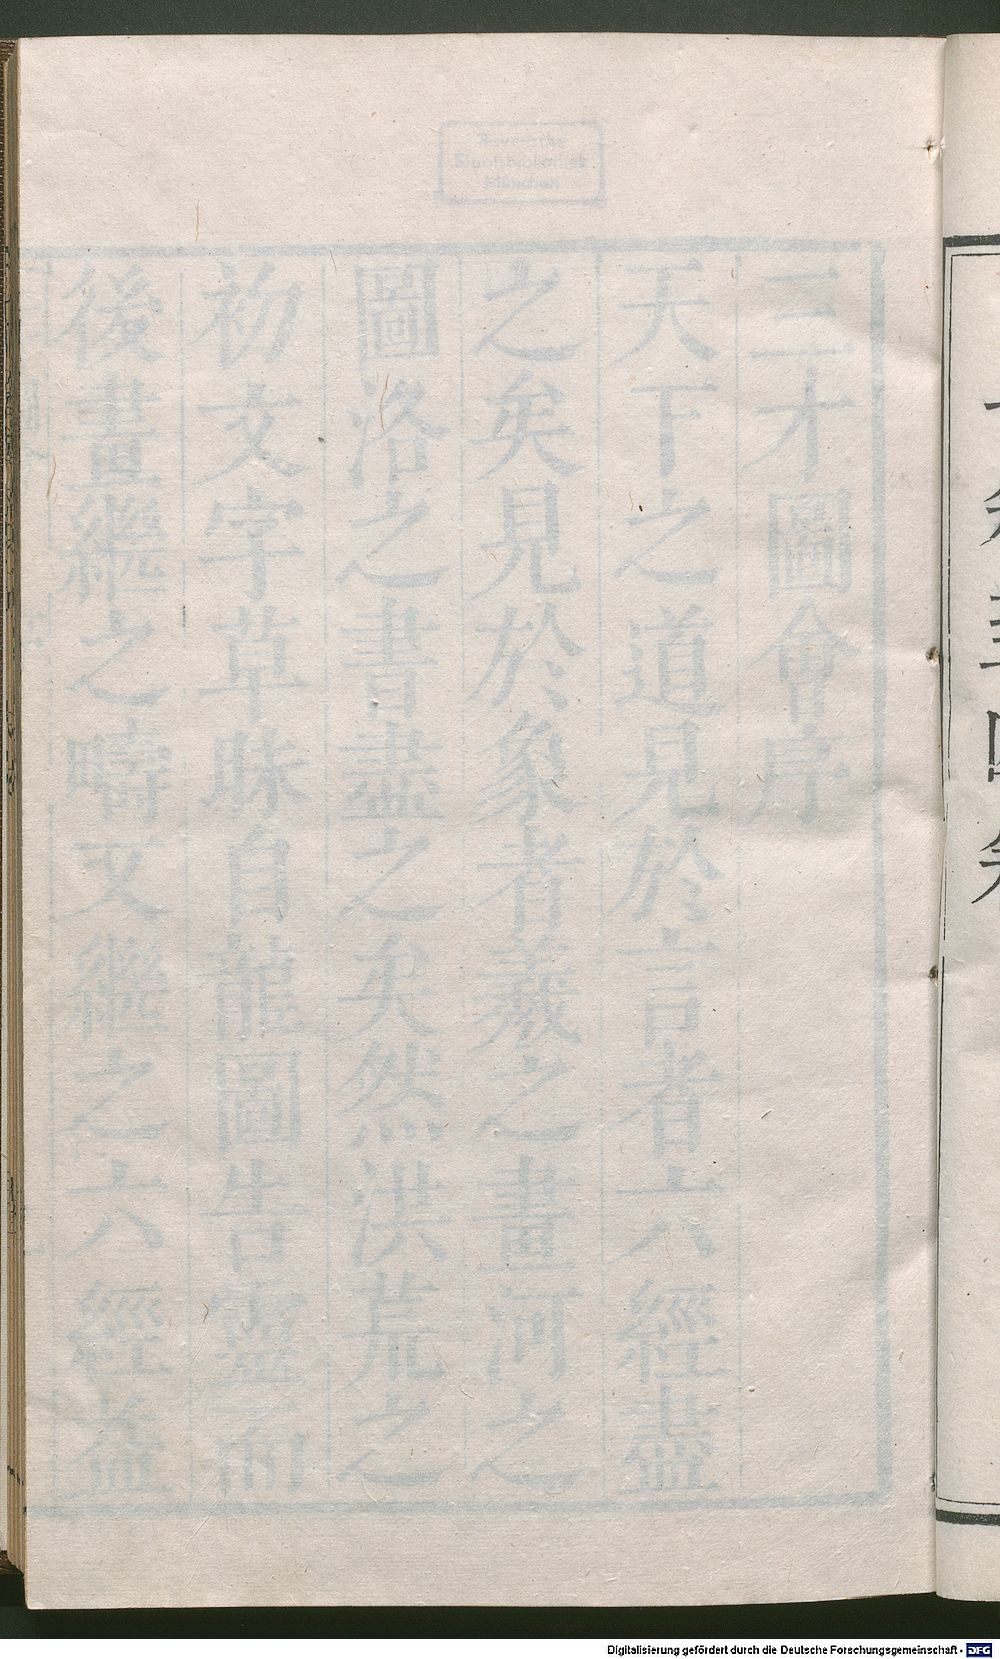 Bayerische
Staatsbibliothek
München
三才圖會序
天下之道見於言者六經盡
之矣見於象者羲之畫河之
圖洛之書盡之矣然洪荒之
初文字草昧自龍圖告靈而
後畫繼之疇又繼之六經益
Digitalisierung gefördert durch die Deutsche Forschungsgemeinschaft - DFG